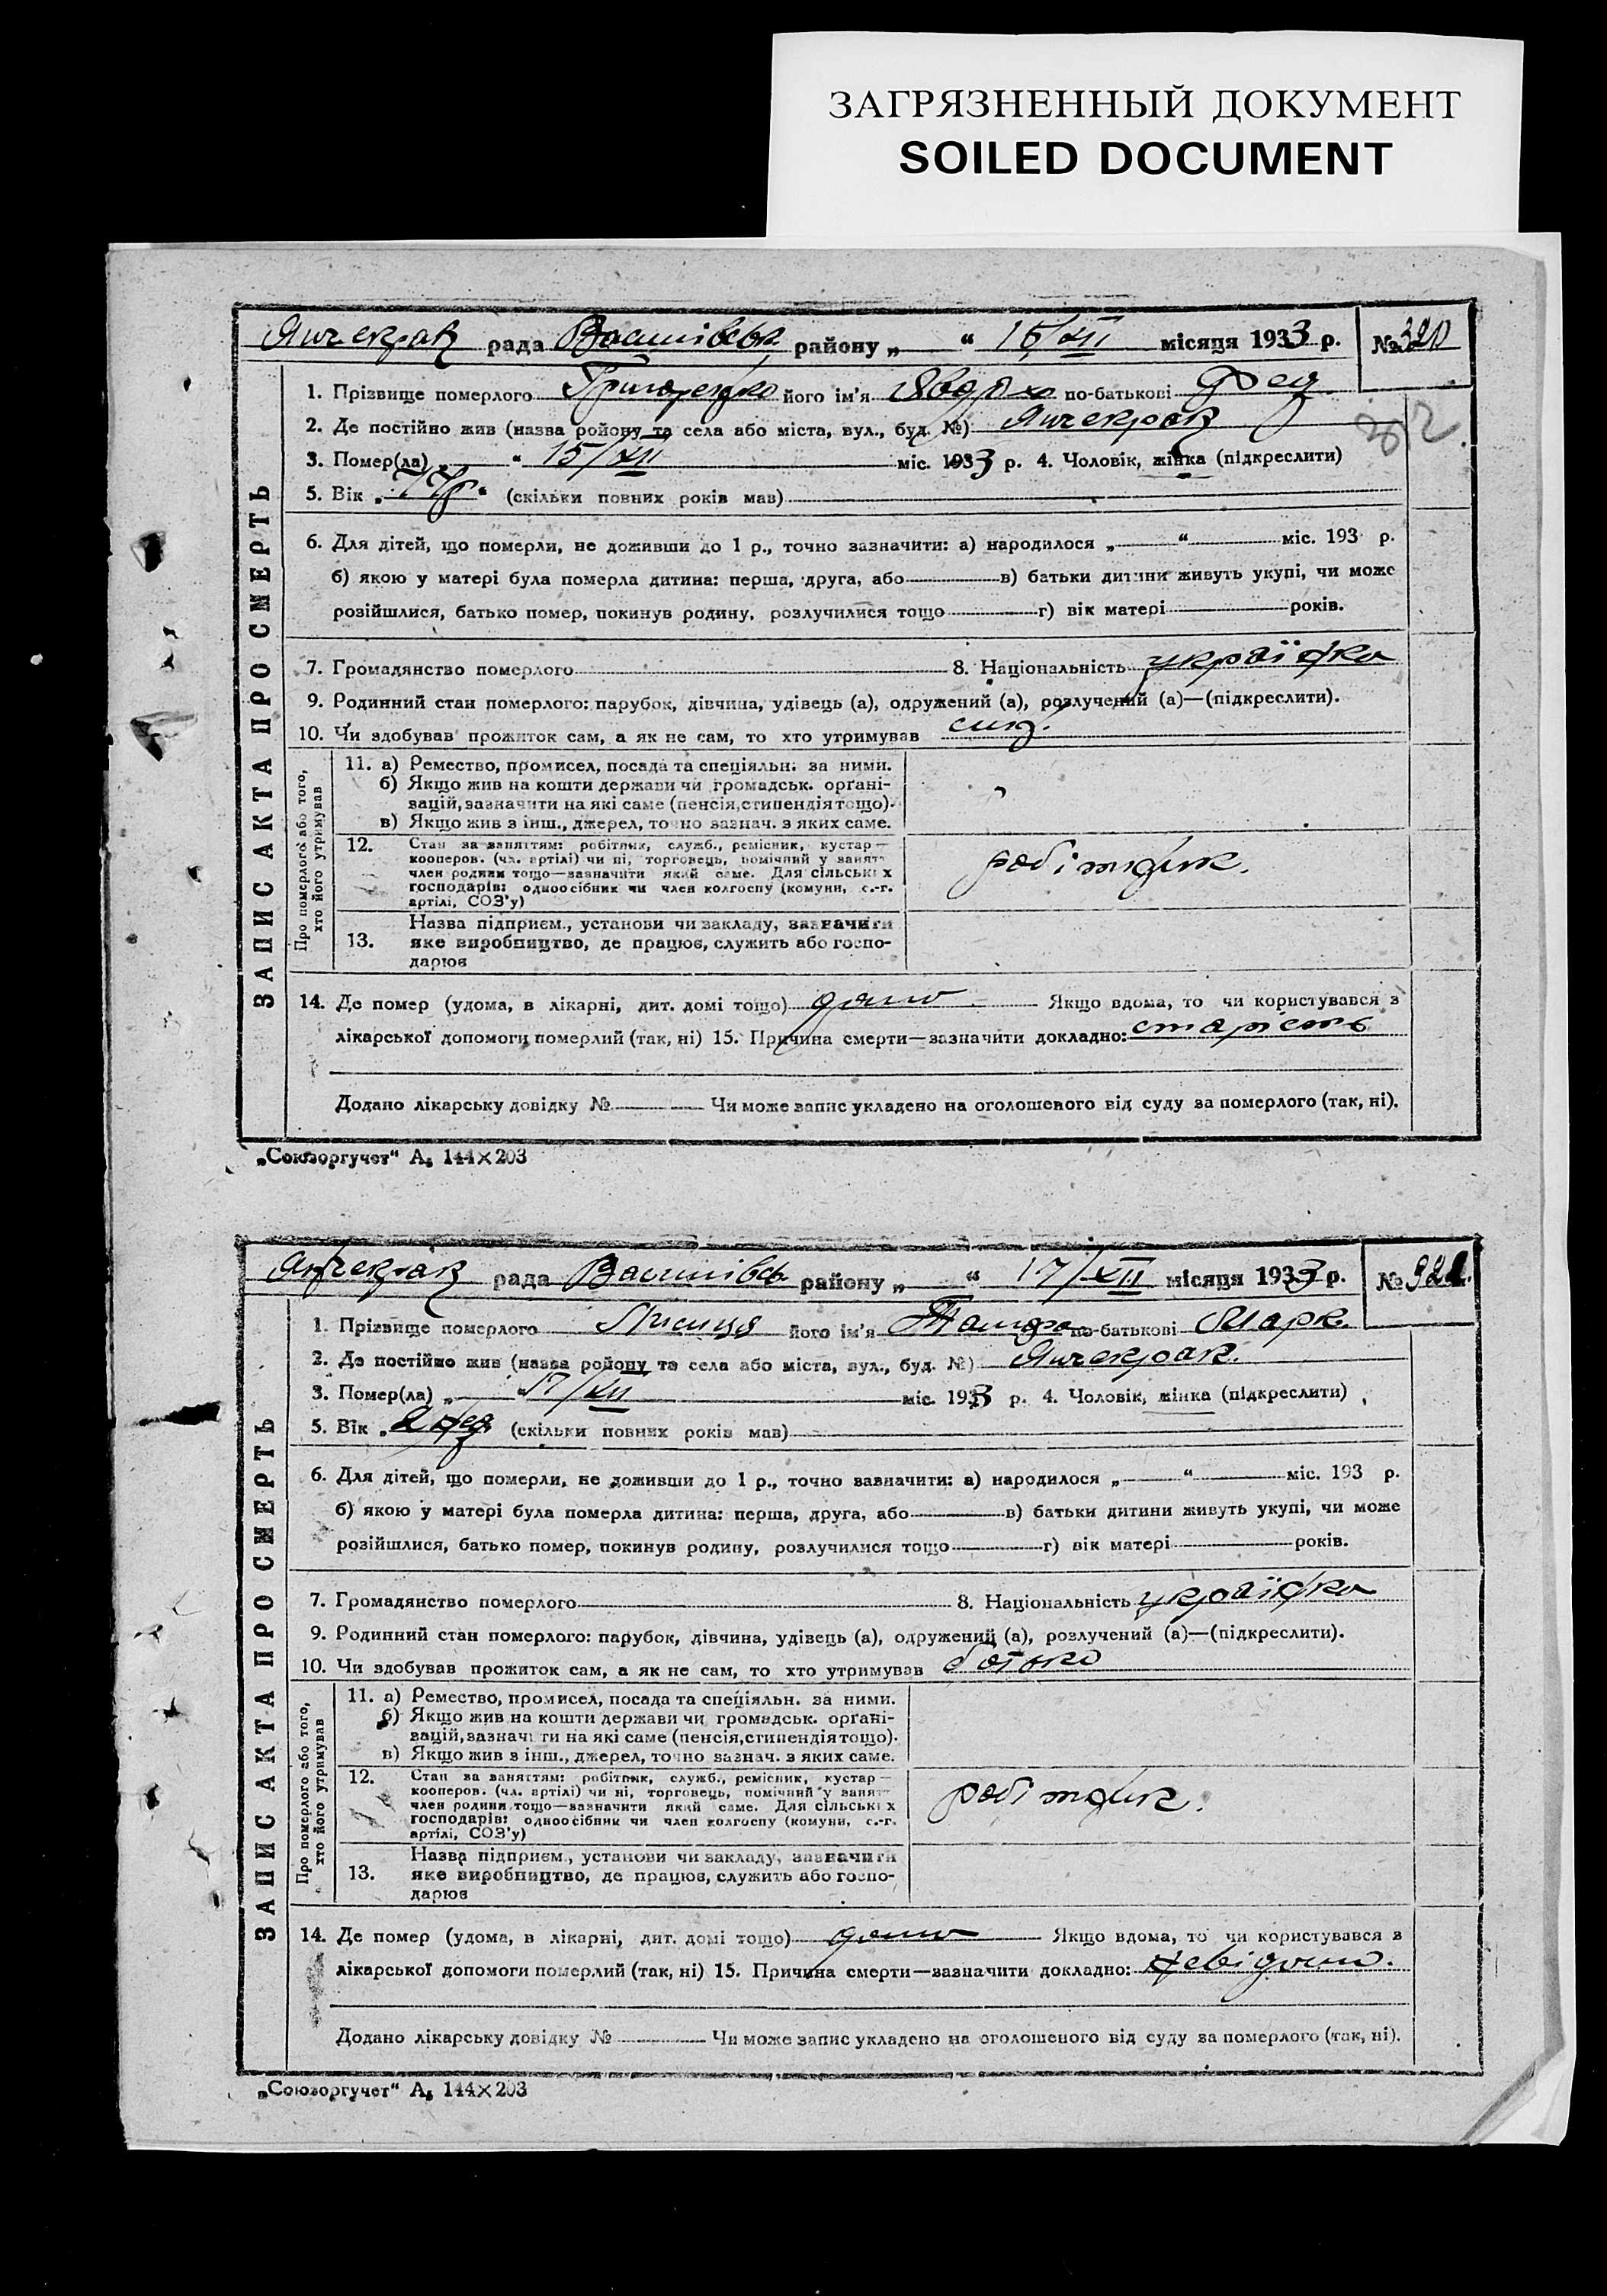 ЗАГРЯЗНЕННЫЙ ДОКУМЕНТ
SOILED DOCUMENT
Янчекрак рада Василівськ району „ “ 15/XII місяця 1933 р. № 320
ЗАПИС АКТА ПРО СМЕРТЬ
1. Прізвище померлого Григоренко його ім'я по-батькові Фед
2. Де постійно жив (назва району та села або міста, вул., буд. №) Янчекрак
3. Помер(ла) „ “ 15/XII міс. 1933 р. 4. Чоловік, жінка (підкреслити)
5. Вік „ “ (скільки повних років мав)
6. Для дітей, що померли, не доживши до 1 р., точно зазначити: а) народилося „ “ міс. 193 р.
б) якою у матері була померла дитина: перша, друга, або в) батьки дитини живуть укупі, чи може
розійшлися, батько помер, покинув родину, розлучилися тощо г) вік матері років.
7. Громадянство померлого 8. Національність українка
9. Родинний стан померлого: парубок, дівчина, удівець (а), одружений (а), розлучений (а)—(підкреслити).
10. Чи здобував прожиток сам, а як не сам, то хто утримував син.
Про померлого або того, хто його утримував
11. а) Ремество, промисел, посада та спеціяльн. за ними.
б) Якщо жив на кошти держави чи громадськ. орґані-
зацій, зазначити на які саме (пенсія, стипендія тощо).
в) Якщо жив з інш., джерел, точно зазнач. з яких саме.
12. Стан за заняттям: робітник, служб., ремісник, кустар—
кооперов. (чл. артілі) чи ні, торговець, помічний у занят
член родини тощо—зазначити який саме. Для сільських
господарів: одноосібник чи член колгоспу (комуни, с.-г.
артілі, СОЗ'у)
робітник.
Назва підприєм., установи чи закладу, зазначити
13. яке виробництво, де працює, служить або госпо-
дарює
14. Де помер (удома, в лікарні, дит. домі тощо) дома Якщо вдома, то чи користувався з
лікарської допомоги померлий (так, ні) 15. Причина смерти—зазначити докладно: старість
Додано лікарську довідку № Чи може запис укладено на оголошеного від суду за померлого (так, ні).
„Союзоргучет“ А₅ 144×203
Янчекрак рада Василівсь району „ “ 17/XII місяця 1933 р. № 321.
ЗАПИС АКТА ПРО СМЕРТЬ
1. Прізвище померлого Лисиця його ім'я по-батькові Марк.
2. Де постійно жив (назва району та села або міста, вул., буд. №) Янчекрак.
3. Помер(ла) „ 17/XII міс. 1933 р. 4. Чоловік, жінка (підкреслити)
5. Вік „ 2 нед. (скільки повних років мав)
6. Для дітей, що померли, не доживши до 1 р., точно зазначити: а) народилося „ “ міс. 193 р.
б) якою у матері була померла дитина: перша, друга, або в) батьки дитини живуть укупі, чи може
розійшлися, батько помер, покинув родину, розлучилися тощо г) вік матері років.
7. Громадянство померлого 8. Національність українка
9. Родинний стан померлого: парубок, дівчина, удівець (а), одружений (а), розлучений (а)—(підкреслити).
10. Чи здобував прожиток сам, а як не сам, то хто утримував батько
Про померлого або того, хто його утримував
11. а) Ремество, промисел, посада та спеціяльн. за ними.
б) Якщо жив на кошти держави чи громадськ. орґані-
зацій, зазначити на які саме (пенсія, стипендія тощо).
в) Якщо жив з інш., джерел, точно зазнач. з яких саме.
12. Стан за заняттям: робітник, служб., ремісник, кустар—
кооперов. (чл. артілі) чи ні, торговець, помічний у занят
член родини тощо—зазначити який саме. Для сільських
господарів: одноосібник чи член колгоспу (комуни, с.-г.
артілі, СОЗ'у)
робітник.
Назва підприєм., установи чи закладу, зазначити
13. яке виробництво, де працює, служить або госпо-
дарює
14. Де помер (удома, в лікарні, дит. домі тощо) дома Якщо вдома, то чи користувався з
лікарської допомоги померлий (так, ні) 15. Причина смерти—зазначити докладно: невідомо.
Додано лікарську довідку № Чи може запис укладено на оголошеного від суду за померлого (так, ні).
„Союзоргучет“ А₅ 144×203